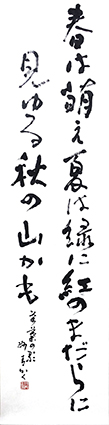 春は萌え夏は緑に紅のまだらに
見ゆる秋の山かも
万葉の歌